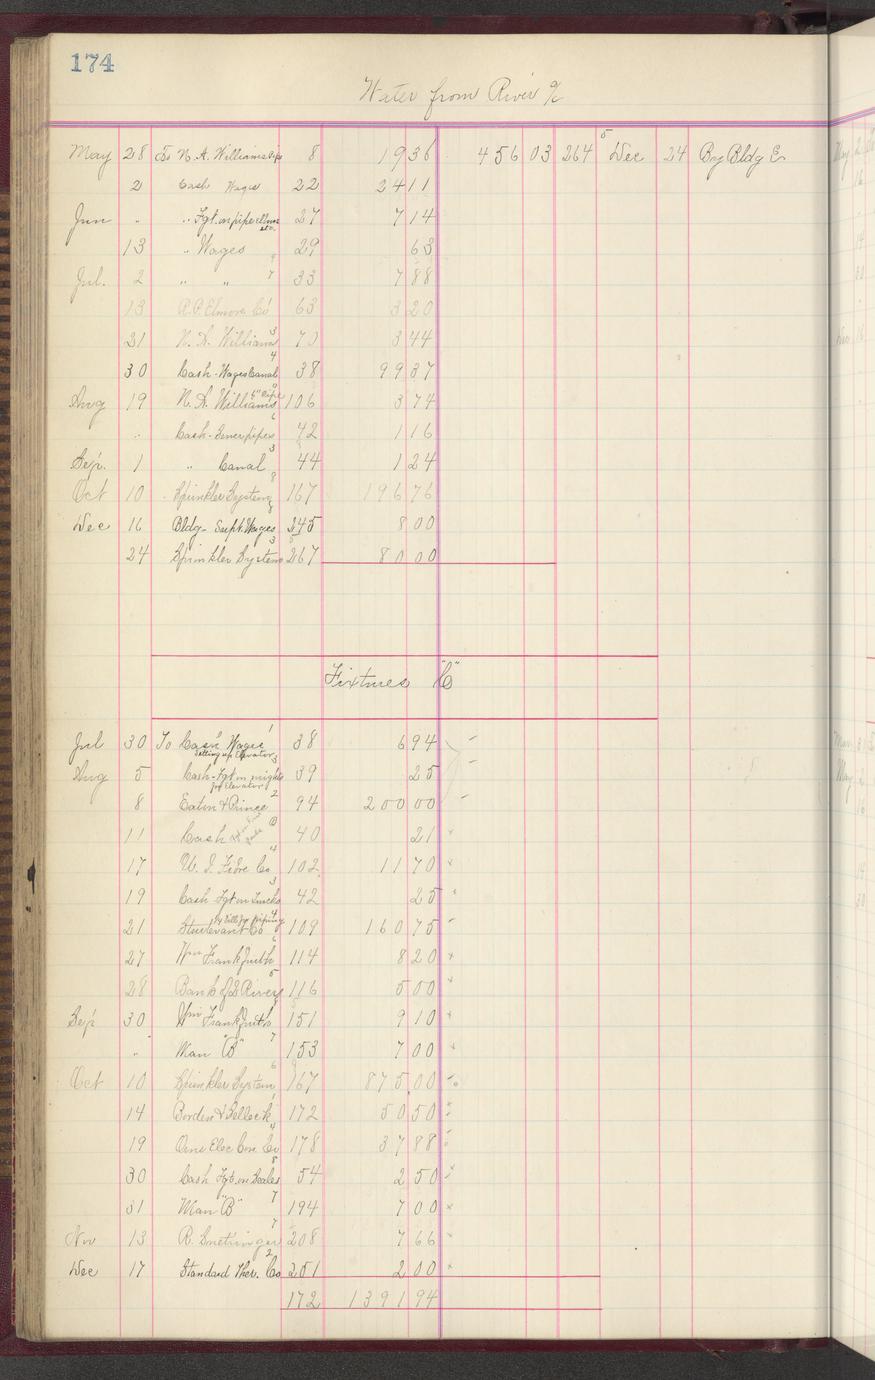 174
Water from River a/c
May 28 To N. A. Williams 8 19 36 456 03 264 Dec 24 By Bldg E
2 Cash Wages 22 24 11
Jun " " Fgt. on pipe Elmore etc. 27 7 14
13 " Wages 29 63
Jul. 2 " " 33 7 88
13 R. P. Elmore Co 63 3 20
21 N. A. Williams 70 3 44
30 Cash - Wages Canal 38 99 37
Aug 19 N. A. Williams 6" Pipe 106 3 74
" Cash - Sewer pipes 42 1 16
Sep. 1 " Canal 44 1 24
Oct 10 Sprinkler System 167 196 76
Dec 16 Bldg - Supt. Wages 245 8 00
24 Sprinkler System 267 80 00
Fixtures "C"
Jul 30 To Cash Wages 38 6 94
Setting up Elevator
Aug 5 Cash - Fgt on 39 25
for Elevator
8 Eaton & Prince 94 200 00
11 Cash 40 21
17 U. S. Fibre Co 102 11 70
19 Cash Fgt on Trucks 42 25
21 Sturtevant Co 109 160 75
27 Wm Frankfurth 114 8 20
28 Bank of 2 Rivers 116 5 00
Sep 30 Wm Frankfurth 151 9 10
" Man "B" 153 7 00
Oct 10 Sprinkler System 167 875 00
14 Borden & Selleck 172 50 50
19 Elec Con Co 178 37 88
30 Cash Fgt. on Scales 54 2 50
31 Man "B" 194 7 00
Nov 13 R. 208 7 66
Dec 17 Standard Ther. Co 251 2 00
172 1391 94